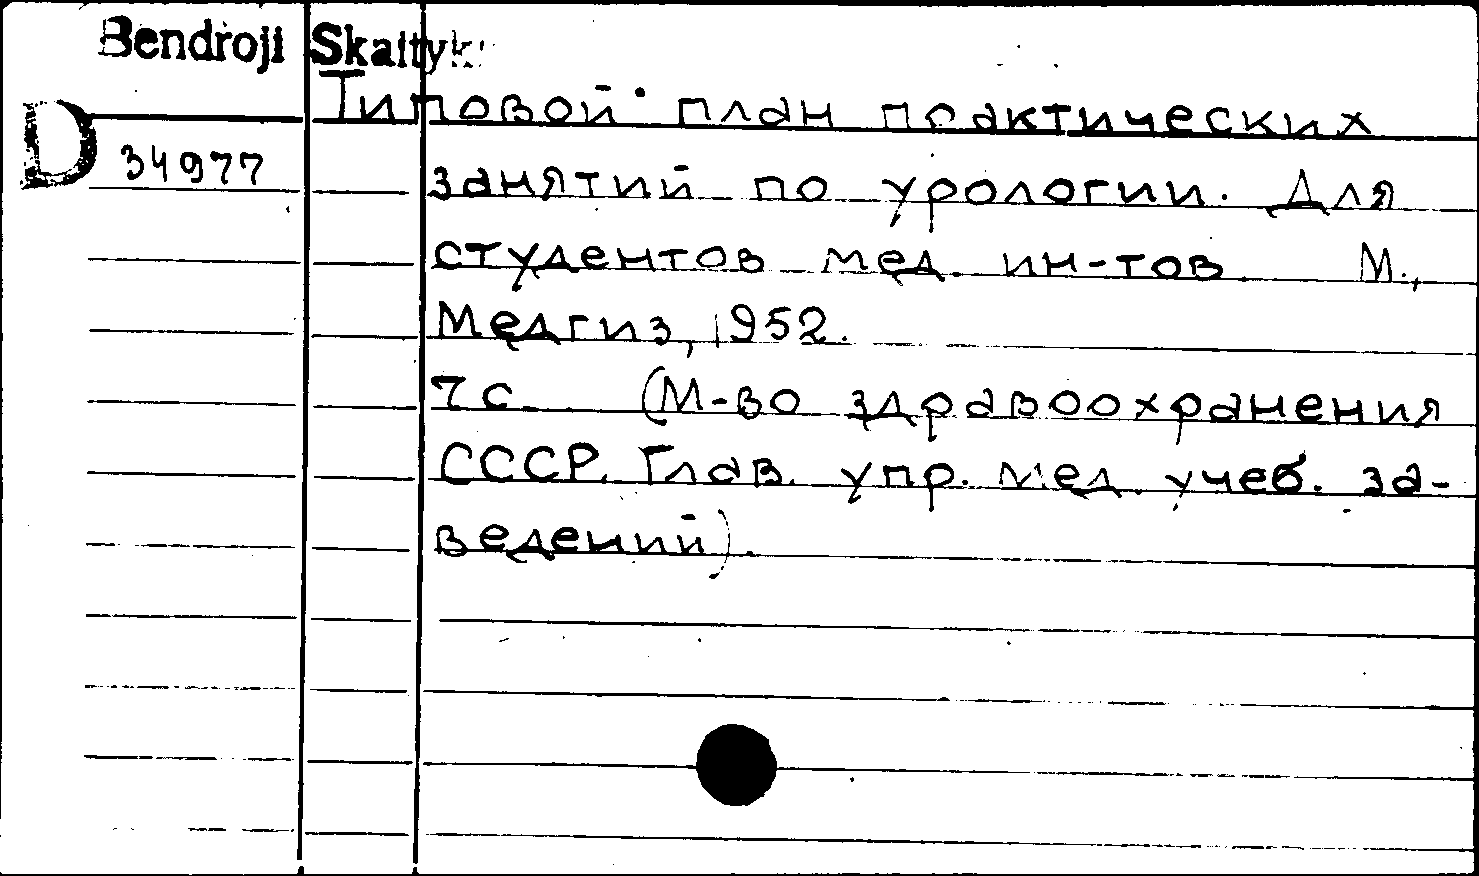 Bendroji Skaityk
Типовой план практических
D 34977 занятий по урологии. Для
студентов мед. ин-тов. М.,
Медгиз, 1952.
7 с. (М-во здравоохранения
СССР. Глав. упр. мед. учеб. за-
ведений).